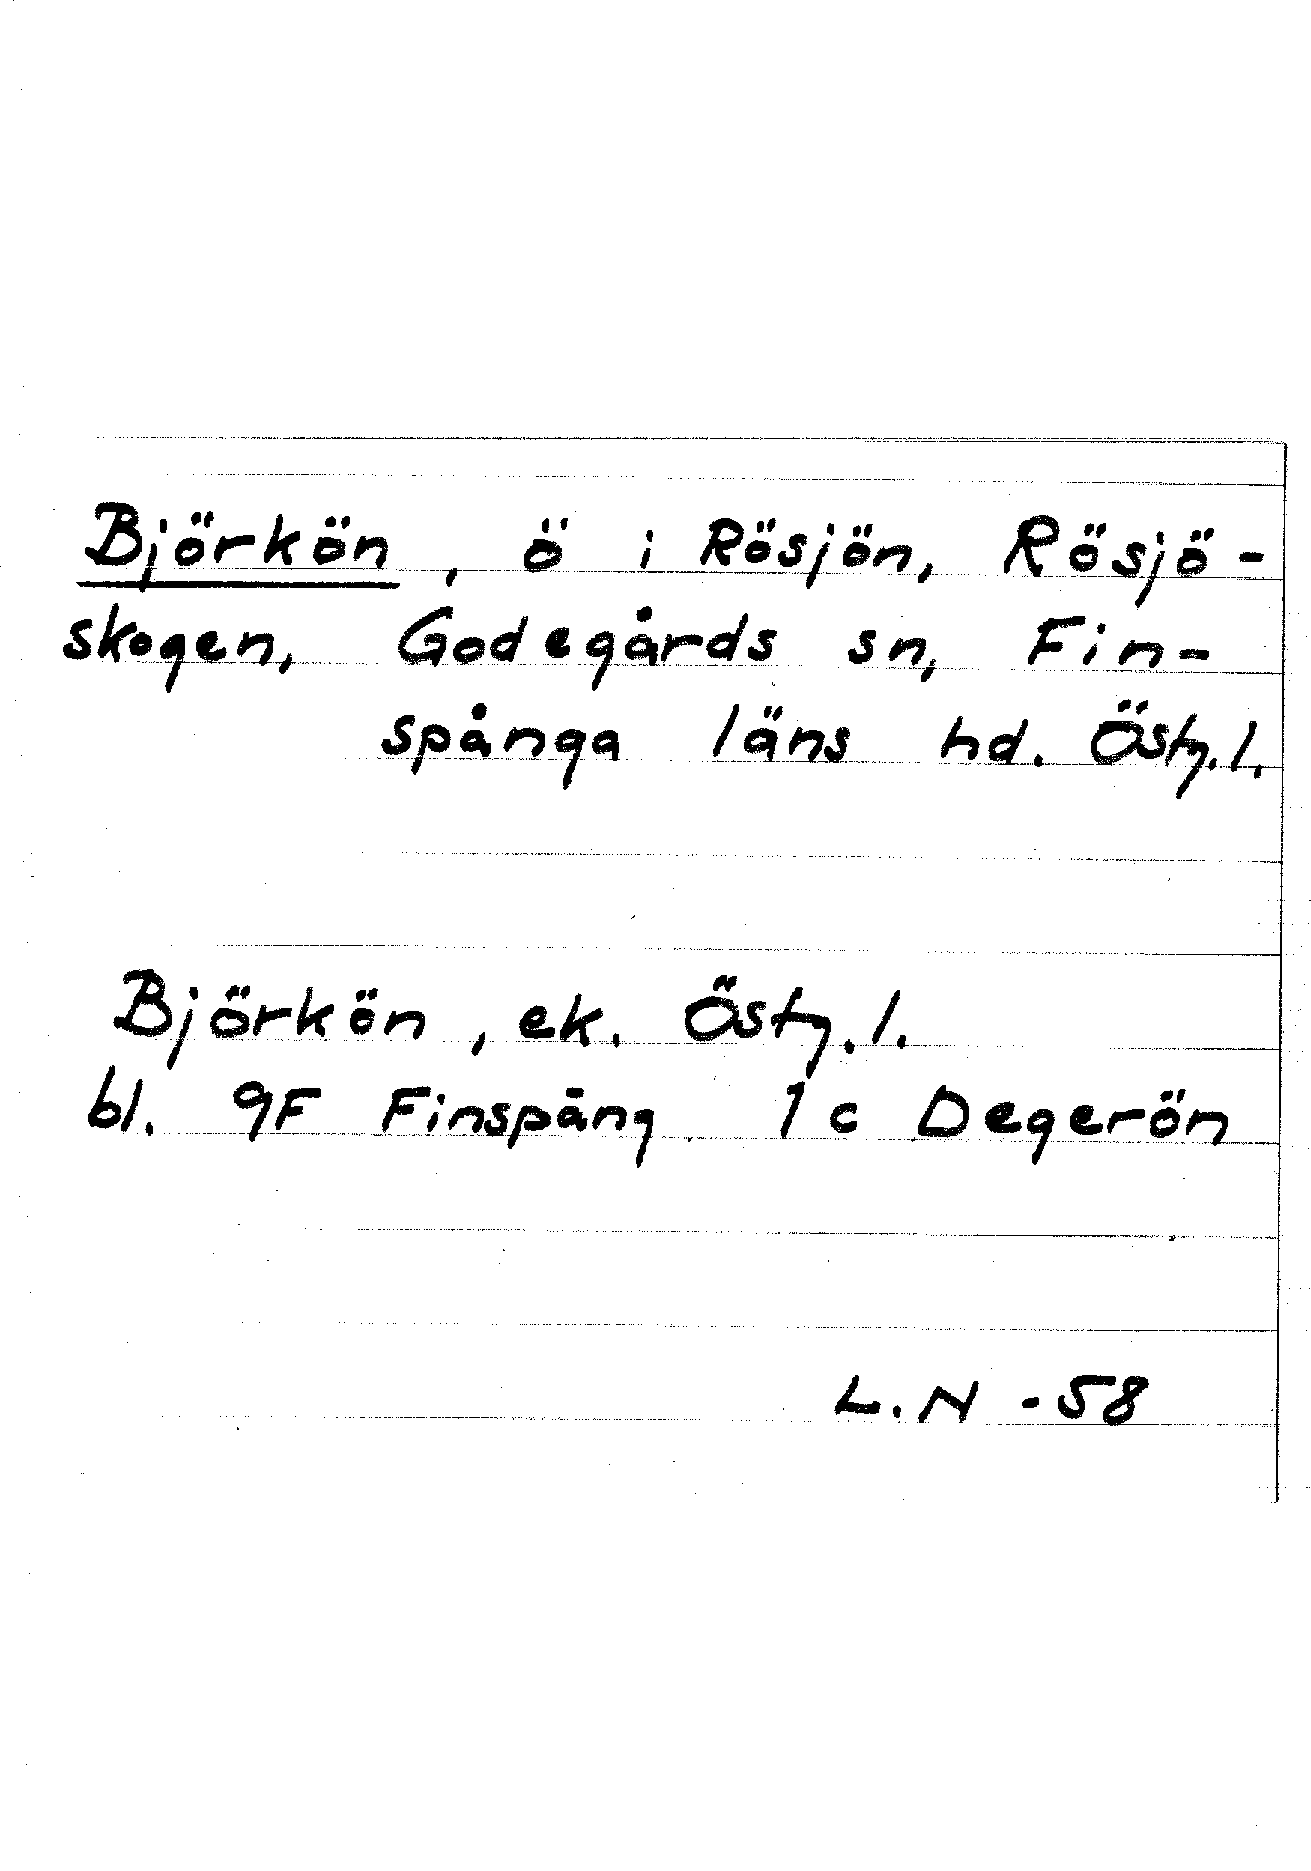 Björkön, ö i Rösjön, Rösjö-
skogen, Godegårds sn, Fin-
spånga läns hd. Östg.l.
Björkön, ek. Östg.l.
bl. 9F Finspång 1c Degerön
L.N -58